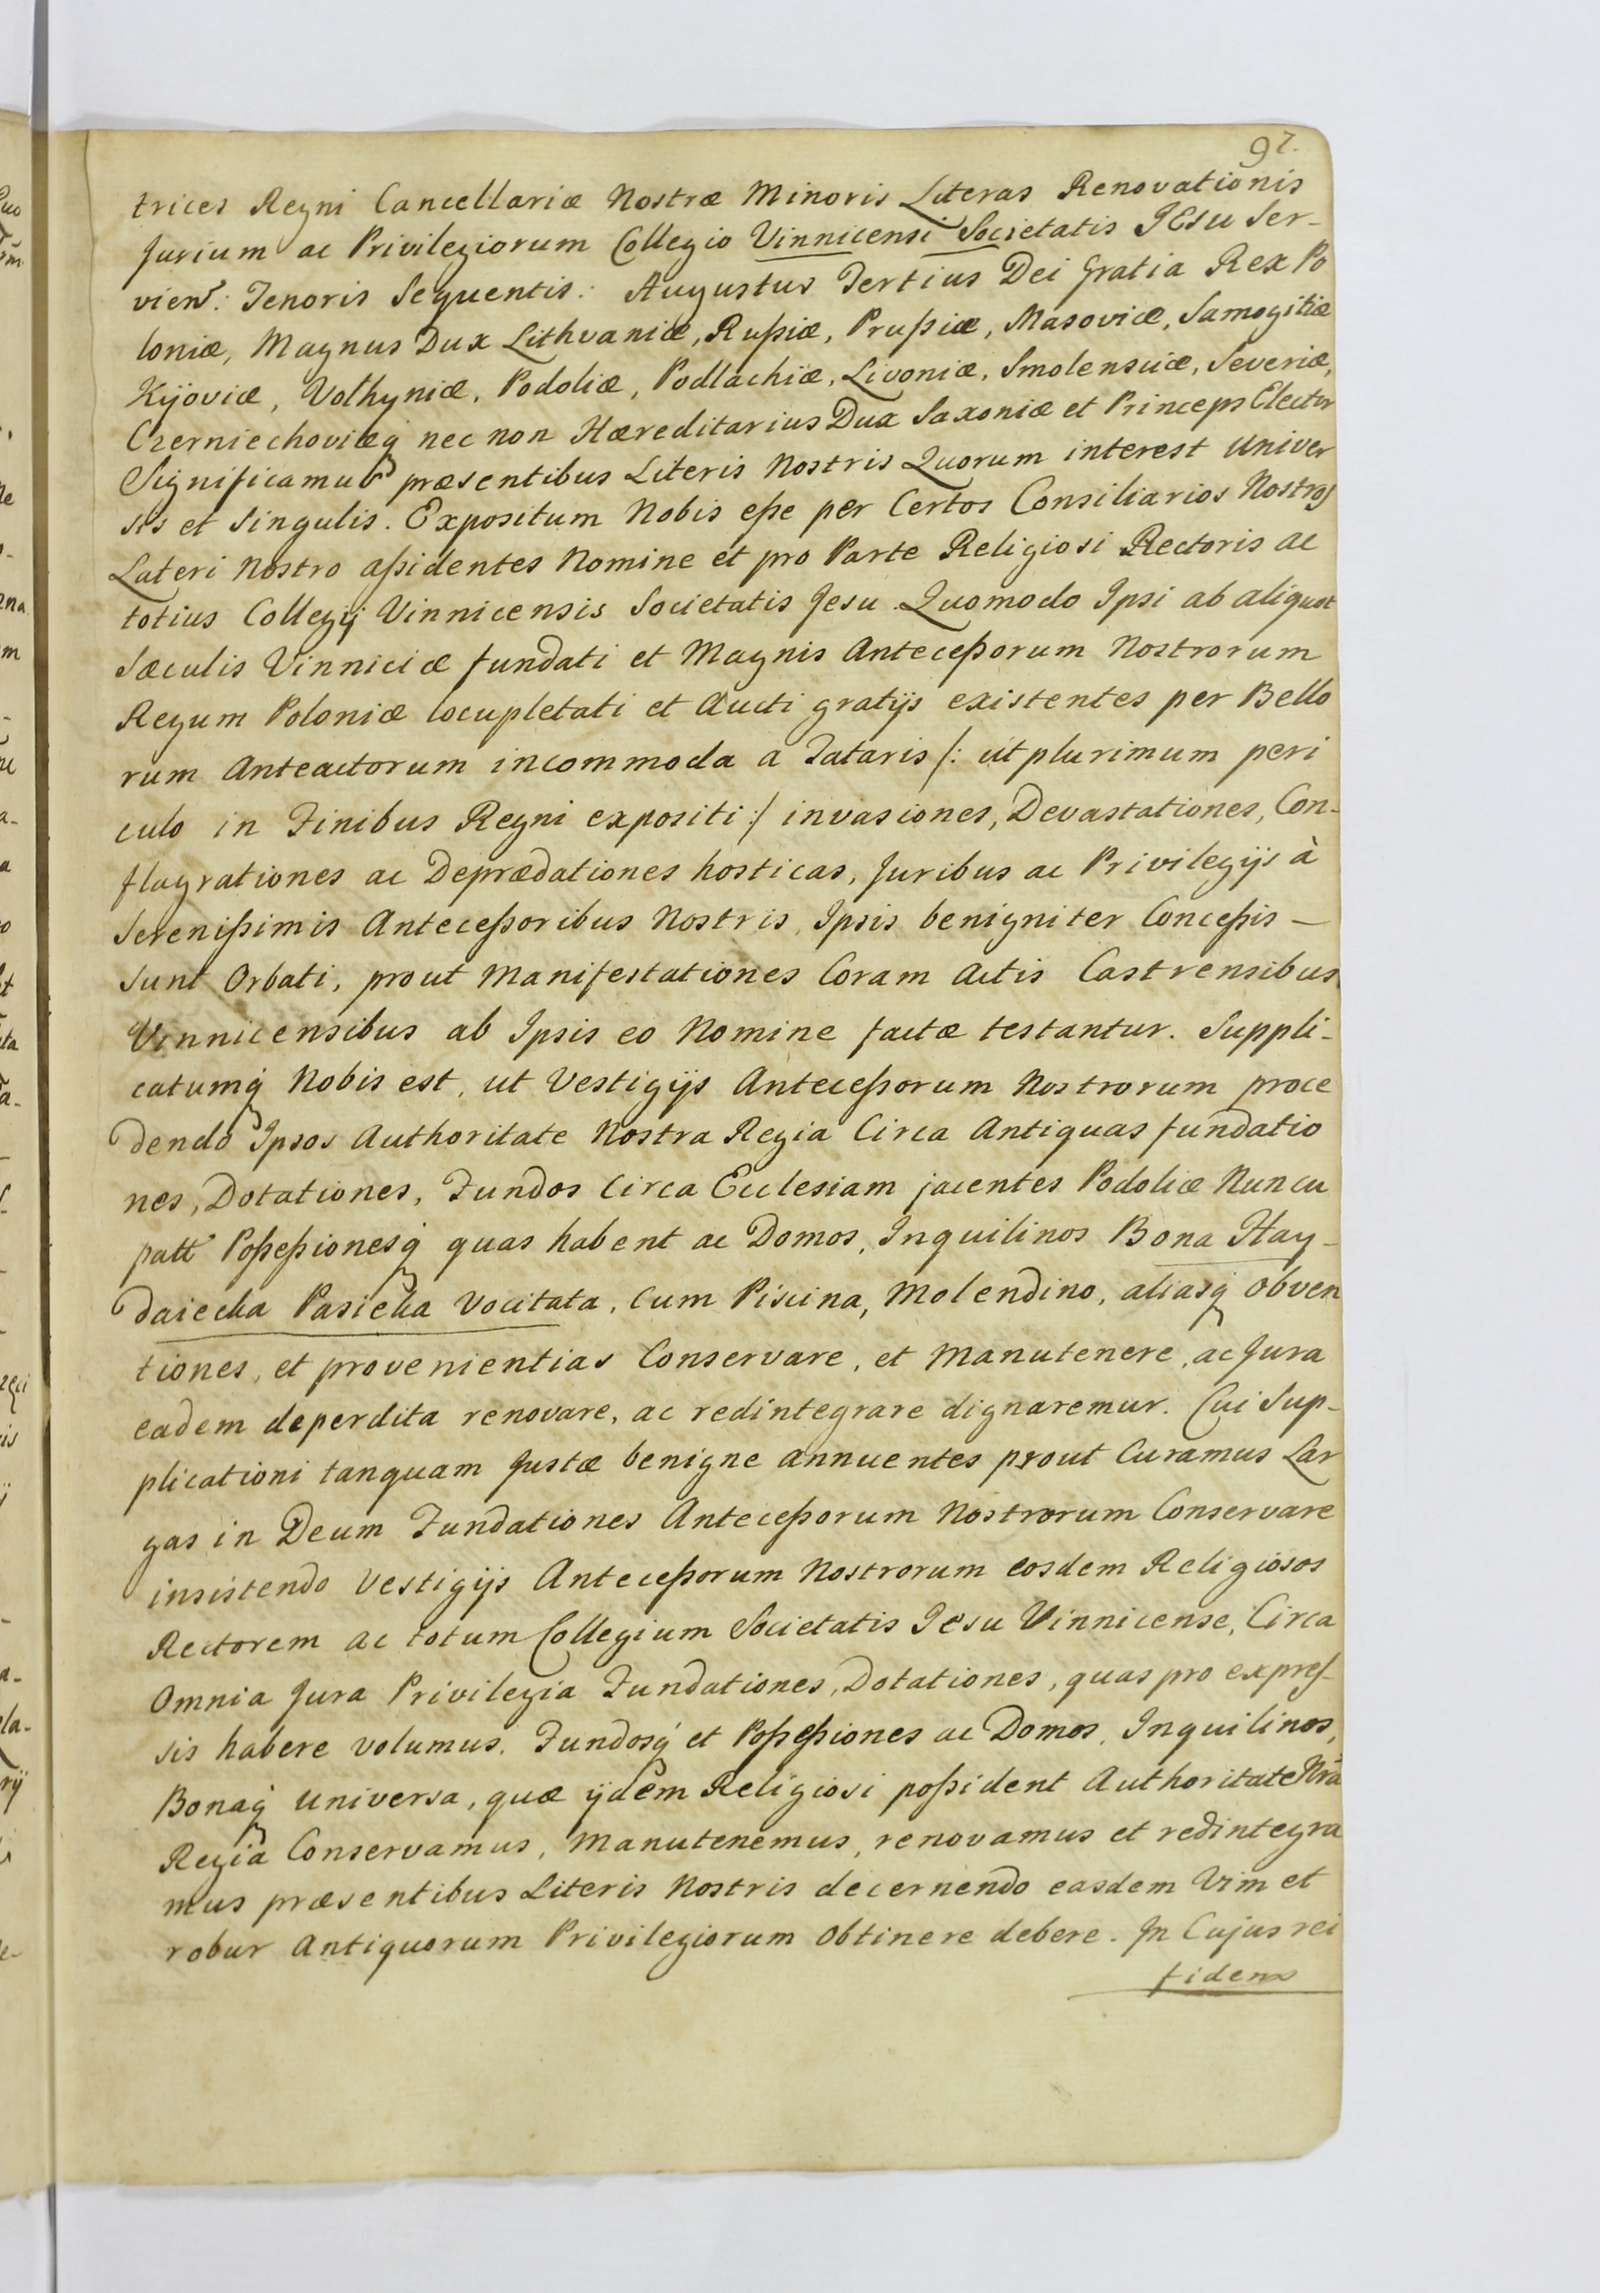 97.
trices Regni Cancellariæ Nostræ Minoris Literas Renovationis
Jurium ac Privilegiorum Collegio Vinnicensi Societatis JEsu Ser-
vien: Tenoris Sequentis: Augustus Tertius Dei Gratia Rex Po
loniæ, Magnus Dux Lithvaniæ, Rußiæ, Prußiæ, Masoviæ, Samogitiæ
Kijoviæ, Volhyniæ, Podoliæ, Podlachiæ, Livoniæ, Smolensciæ, Severiæ,
Czerniechoviæq́ nec non Hæreditarius Dux Saxoniæ et Princeps Elector
Significamus præsentibus Literis Nostris Quorum interest univer
sis et Singulis. Expositum Nobis eße per Certos Consiliarios Nostros
Lateri Nostro aßidentes Nomine et pro Parte Religiosi Rectoris ac
totius Collegij Vinnicensis Societatis Jesu Quomodo Ipsi ab aliquot
Sæculis Vinniciæ fundati et Magnis Anteceßorum Nostrorum
Regum Poloniæ locupletati et Aucti gratijs existentes per Bello
rum Anteactorum incommoda a Tataris /: ut plurimum peri
culo in Finibus Regni expositi :/ invasiones, Devastationes, Con-
flagrationes ac Deprædationes hosticas, Juribus ac Privilegijs à
Serenißimis Anteceßoribus Nostris, Ipsis benigniter Conceßis —
Sunt Orbati, prout Manifestationes Coram Actis Castrensibus
Vinnicensibus ab Ipsis eo Nomine factæ testantur. Suppli-
catumq́ Nobis est, ut Vestigijs Anteceßorum Nostrorum proce
dendo Ipsos Authoritate Nostra Regia Circa Antiquas fundatio
nes, Dotationes, Fundos Circa Ecclesiam jacentes Podoliæ Nuncu
patt Poßeßionesq́ quas habent ac Domos, Inquilinos Bona Hay-
daiecka Pasieka Vocitata, Cum Piscina, Molendino, aliasq́ obven
tiones, et provenientias Conservare, et Manutenere, ac Jura
eadem deperdita renovare, ac redintegrare dignaremur. Cui Sup-
plicationi tanquam Justæ benigne annuentes prout Curamus Lar
gas in Deum Fundationes Anteceßorum Nostrorum Conservare
insistendo Vestigijs Anteceßorum Nostrorum eosdem Religiosos
Rectorem ac totum Collegium Societatis Jesu Vinnicense, Circa
Omnia Jura Privilegia Fundationes, Dotationes, quas pro expres-
sis habere volumus. Fundosq́ et Poßeßiones ac Domos, Inquilinos,
Bonaq́ universa, quæ ijdem Religiosi poßident Authoritate Nrã
Regia Conservamus, Manutenemus, renovamus et redintegra
mus præsentibus Literis Nostris decernendo easdem Vim et
robur Antiquorum Privilegiorum Obtinere debere. In Cujus rei
fidem